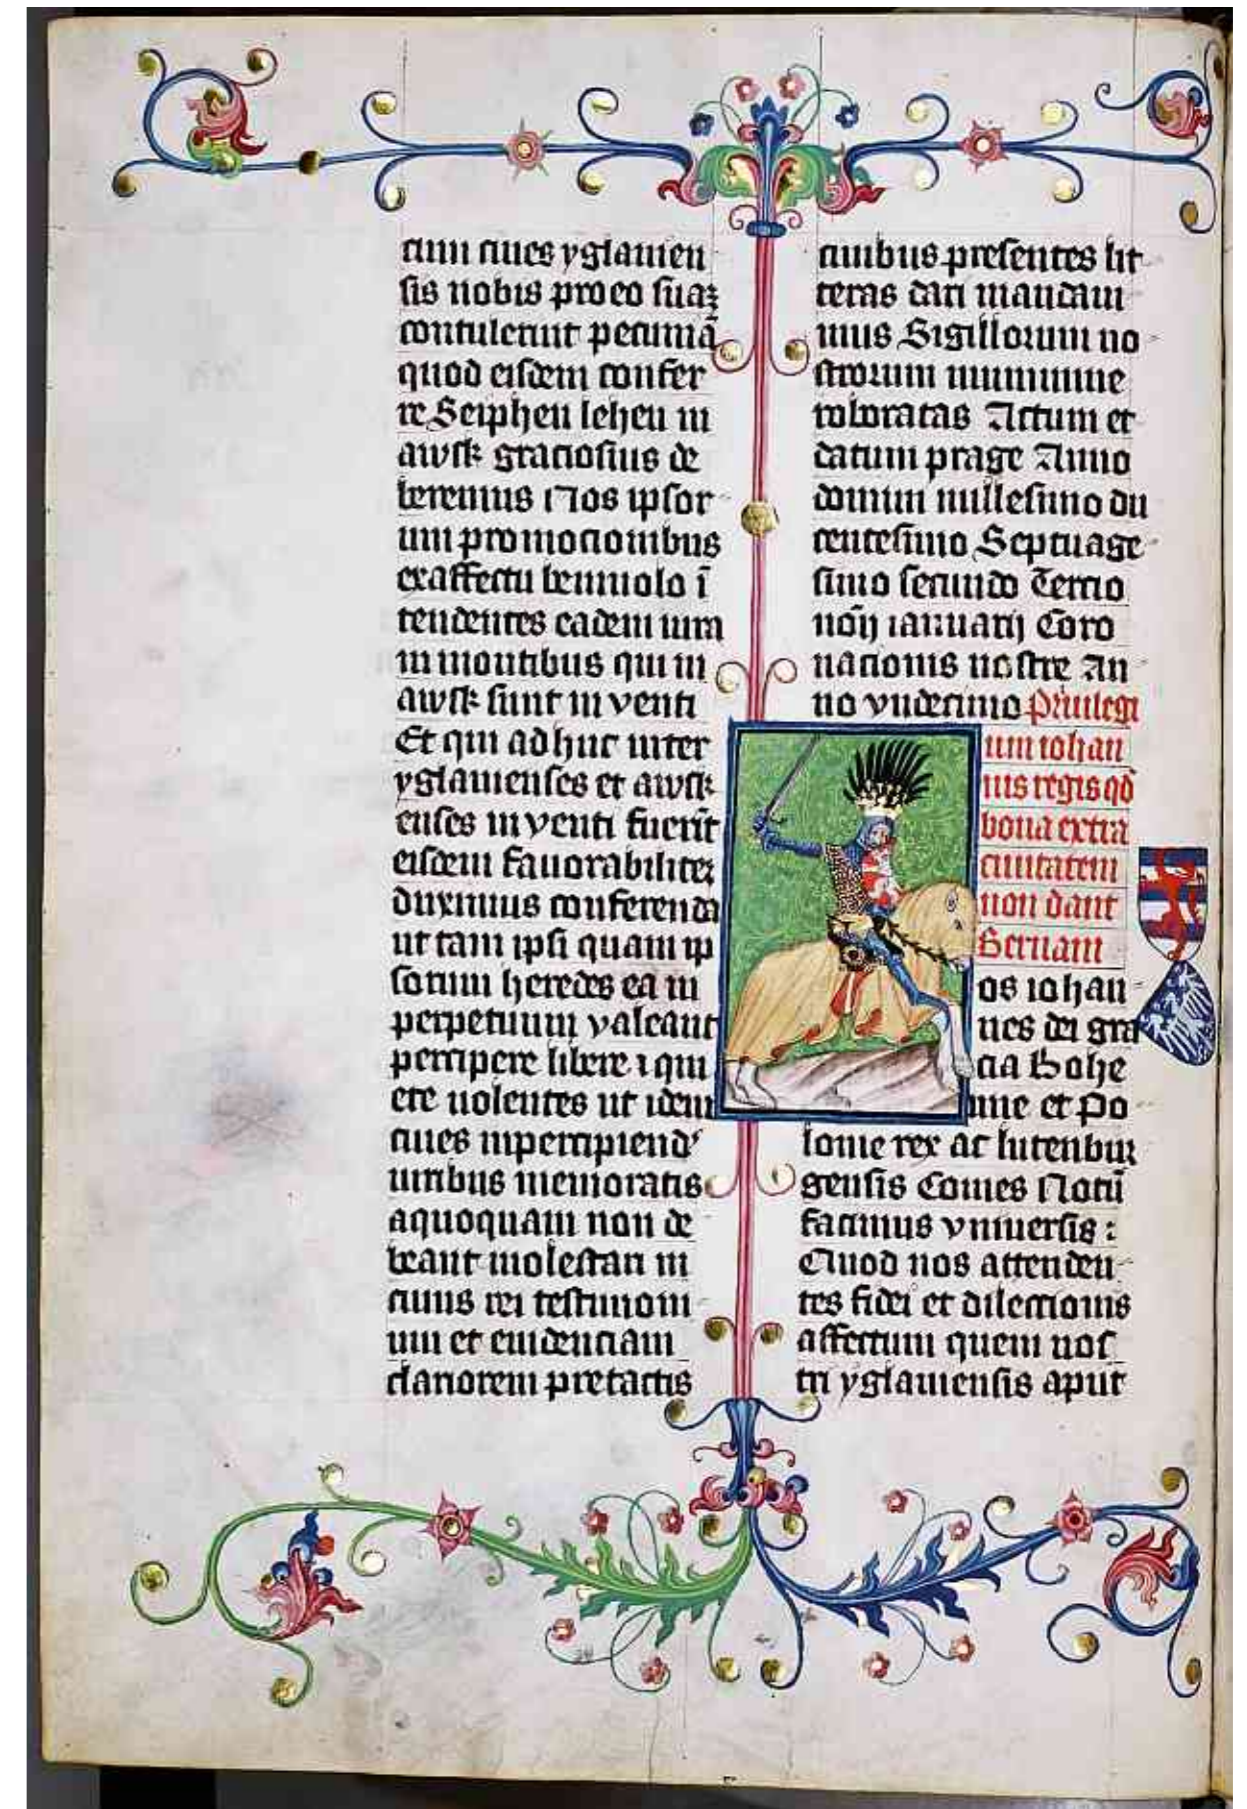 cum ciues yglauien
sis nobis pro eo suaȝ
contulerint pecuniā
quod eisdem confer
re Seiphen lehen in
awsk graciosius de
beremus Nos ipsor
um promocionibus
ex affectu beniuolo ī
tendentes eadem iura
in montibus qui in
awsk sunt in venti
Et qui ad huc inter
yglauienses et awsk
enses in venti fuerīt
eisdem fauorabiliter
duximus conferenda
ut tam ipsi quam ip
sorum heredes ea in
perpetuum valeant
percipere libere ⁊ qui
ete uolentes ut idem
ciues inpercipiend
iuribus memoratis
aquoquam non de
beant molestari in
cuius rei testimoni
um et euidenciam
clariorem pretactis
ciuibus presentes lit
teras dari mandaui
mus Sigillorum no
strorum munimine
roboratas Actum et
datum prage Anno
domini millesimo du
centesimo Septuage
simo secundo Tercio
noīj ianuarij Coro
nacionis nostre An
no vndecimo Priuilegi
um iohan
nis regis qd̄
bona extra
ciuitatem
non dant
Bernam
os iohan
nes dei gra
cia Bohe
mie et Po
lonie rex ac lutenbur
gensis Comes Notū
facimus vniuersis :
Quod nos attenden
tes fidei et dilectionis
affectum quem nos
tri yglauiensis aput